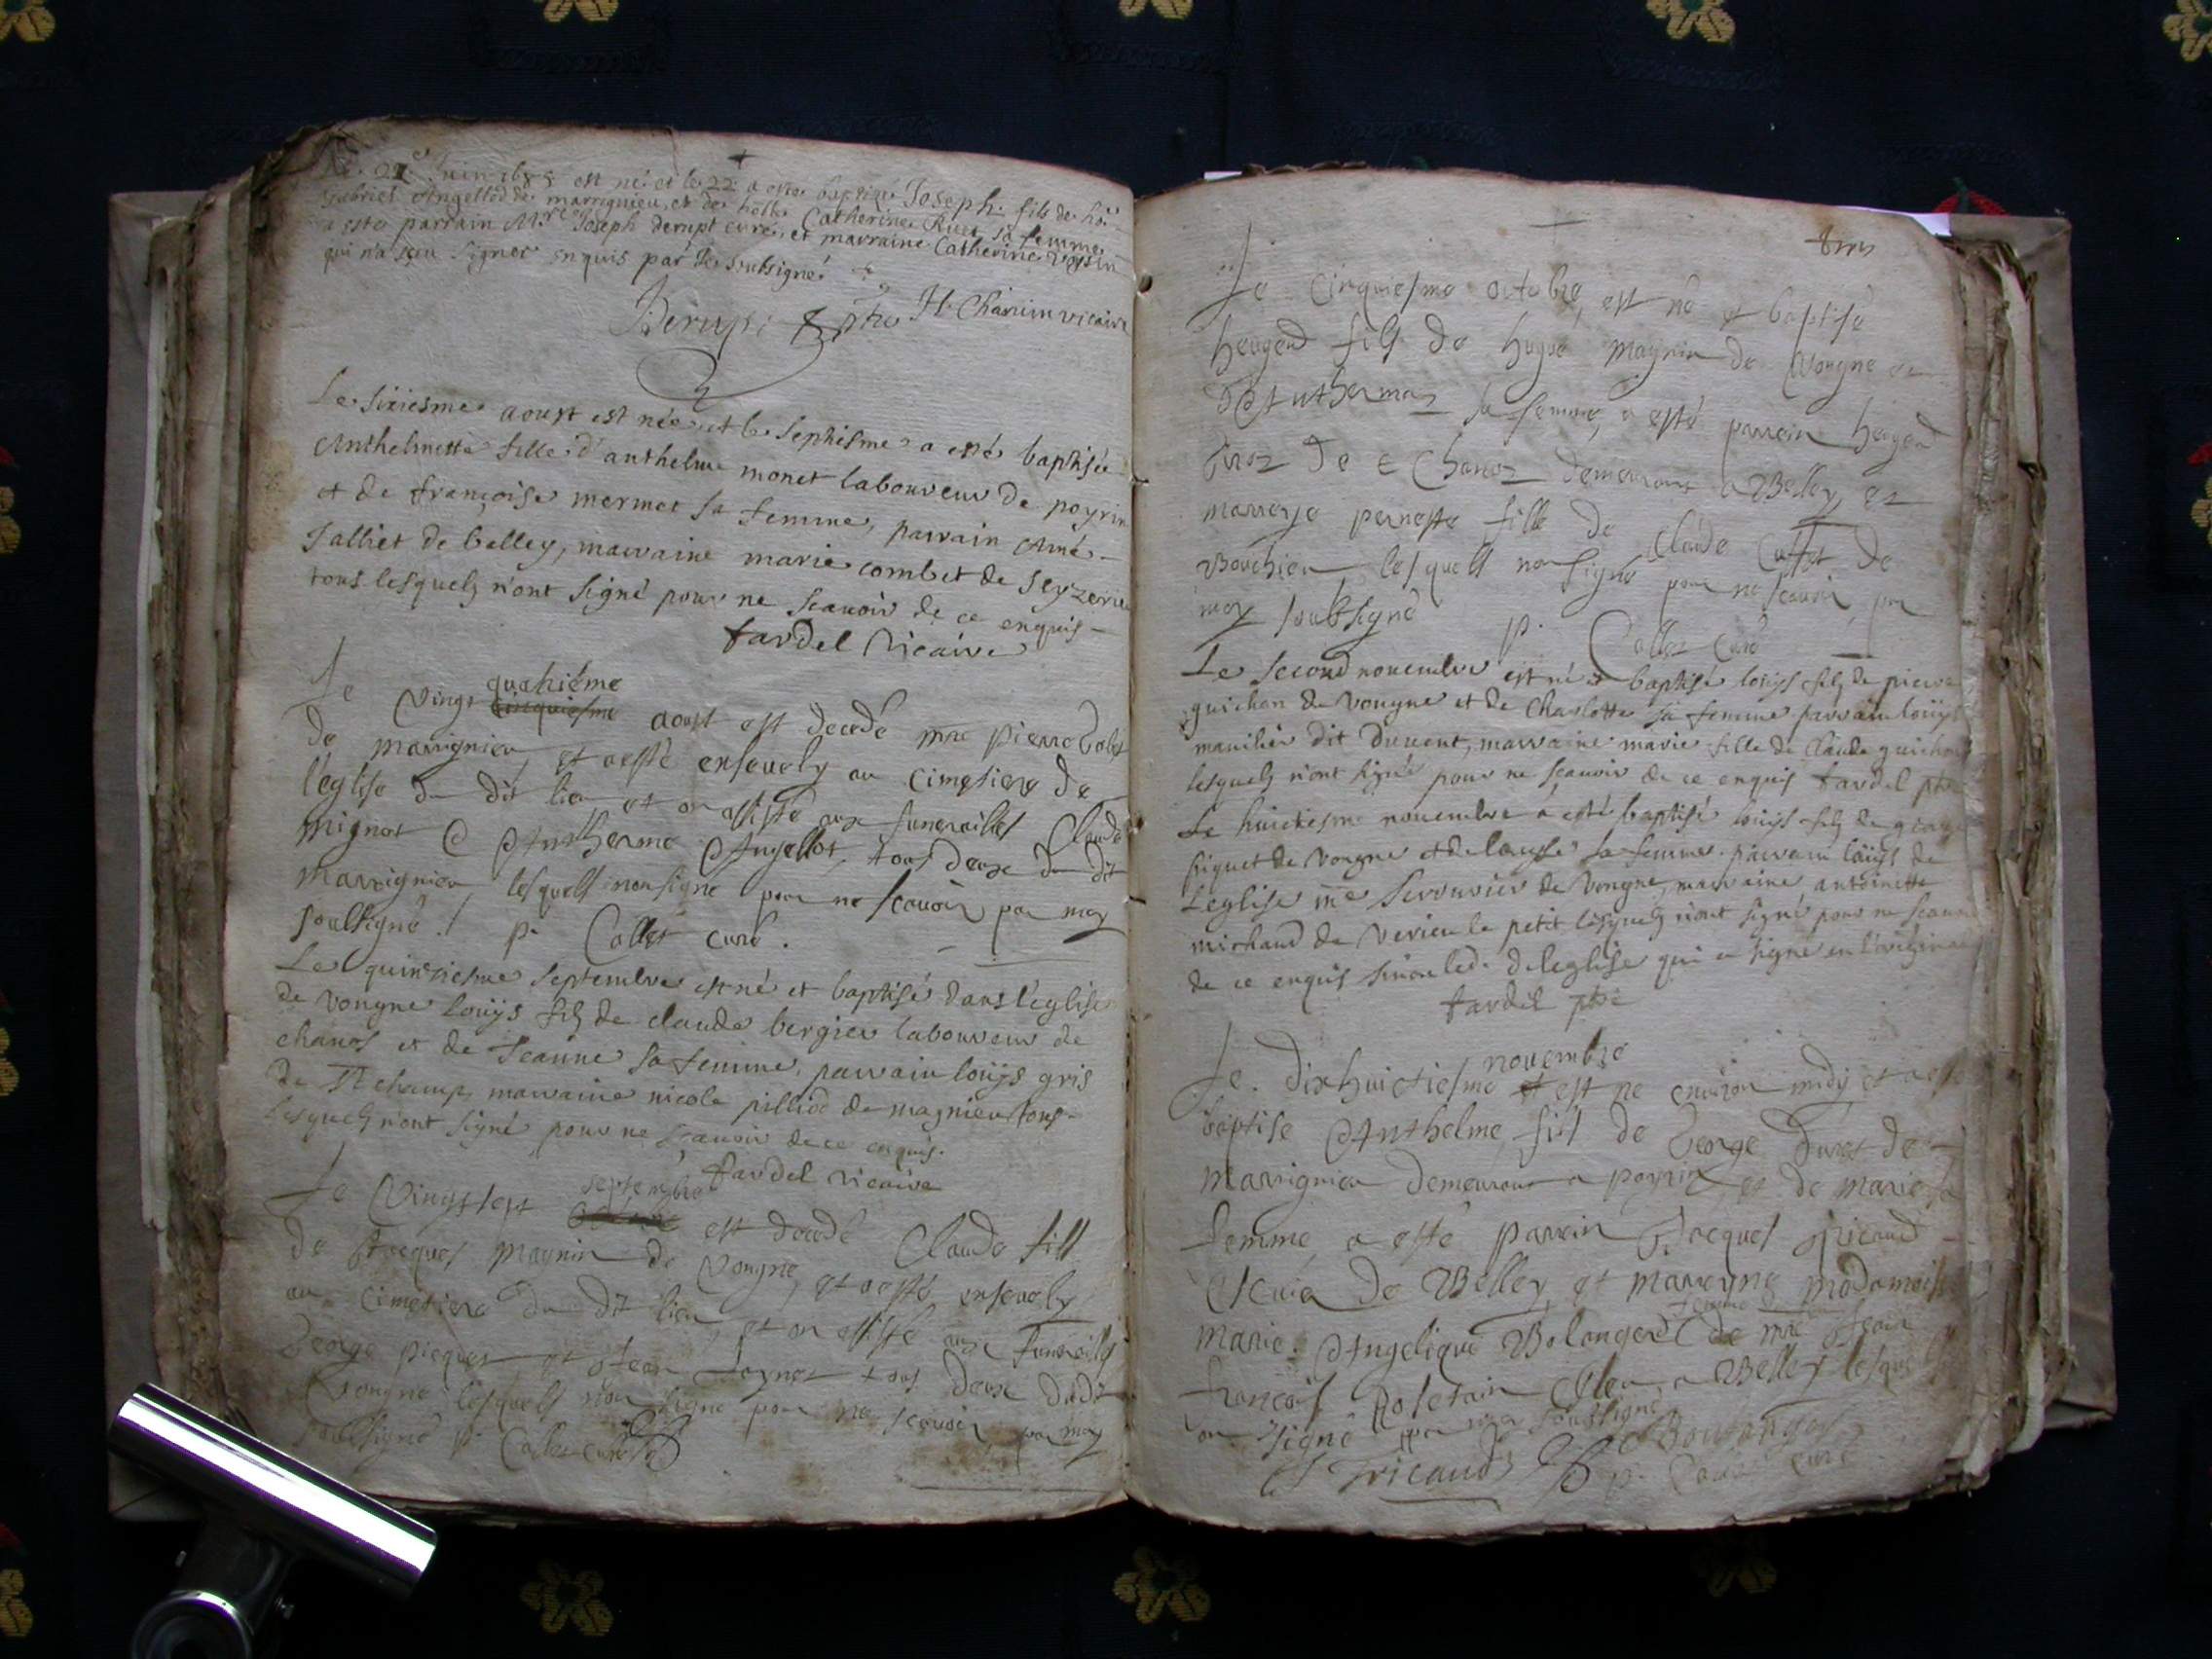 Juin 1685 est né et le 22 a esté baptisé Joseph fils de
Gabriel Angellod de marrignieu, et de Catherine Ruet sa femme
a esté parrain Joseph derupt curé, et marraine Catherine
qui n'a sceu signer enquis par Je soubsigné
Derupt H. Chanin vicaire
Le sixiesme aoust est née et le septiesme a esté baptisée
Anthelmette fille d'anthelme monet laboureur de poyrin
et de françoise mermet sa femme, parrain Amé
Jalliet de belley, marraine marie combet de seyzerieu
tous lesquelz n'ont signé pour ne scauoir de ce enquis
tardel vicaire
quatriéme
Le vingt cinquiesme aoust est decedé mre pierre
de marrignieu, et a esté enseuely au cimetiere de
l'eglise du dit lieu et on assisté aux funerailles Claude
mignot et Antherme Angellot, tous deux du dit
marrignieu lesquells non signé pour ne scauoir par moy
soubsigné p. Collet curé.
Le quinsiesme septembre est né et baptisé dans l'eglise
de vongne louys filz de claude bergier laboureur de
chanos et de Jeanne sa femme, parrain louys gris
de champ, marraine nicole pilliod de magnieu tous
lesquelz n'ont signé pour ne scauoir de ce enquis.
tardel vicaire
septembre
Le vingt sept est decedé Claude fill
de Jacques maynin de vongne, et a esté enseuely
au cimetiere du dit lieu, et on assisté aux funerailles
George picquet et Jean tous deux dudit
vongne lesquells non signé pour ne scauoir par moy
soubsigné p. Collet curé
Le cinquiesme octobre, est né et baptisé
heugend fils de hugue maynin de vongne et
sa femme, a esté parrein heugend
de Chanoz demeurant a Belley, et
marreyne pernette fille de Claude de
lesquells non signé pour ne scauoir, par
moy soubsigné p. Collet Curé
Le second nouembre est né et baptisé louys filz de pierre
guichon de vongne et de charlotte sa femme parrain louys
manilier dit duuent, marraine marie fille de claude guichon
lesquelz n'ont signé pour ne scauoir de ce enquis tardel ptre
Le huictiesme nouembre a esté baptisé louys filz de george
piquet de vongne et de sa femme. parrain louys de
Leglise me serrurier de vongne, marraine antoinette
michaud de virieu le petit lesquelz n'ont signé pour ne scauoir
de ce enquis sinon led. deleglise qui a signé en l'original
tardel ptre
nouembre
Le dixhuictiesme est né enuiron midy et a esté
baptisé Anthelme, fils de George de
marrignieu demeurant a poyrin et de marie sa
femme, a esté parrein Jacques tricaud
de Belley, et marreyne madamoiselle
femme
marie Angelique Bolanger de mre Jean
françois Rosetain a Belley lesquels
on signé par moy soubsigné
Tricaud Boulanger
p. Collet curé